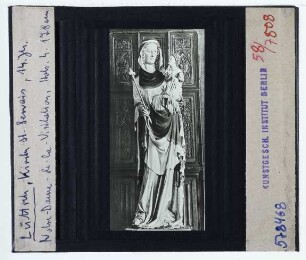 Lüttich, Kirche St. Servais, 14. Jh.
Notre-Dame-de-la-Visitation, Holz h. 178 cm
58/7808
KUNSTGESCH. INSTITUT BERLIN
578468